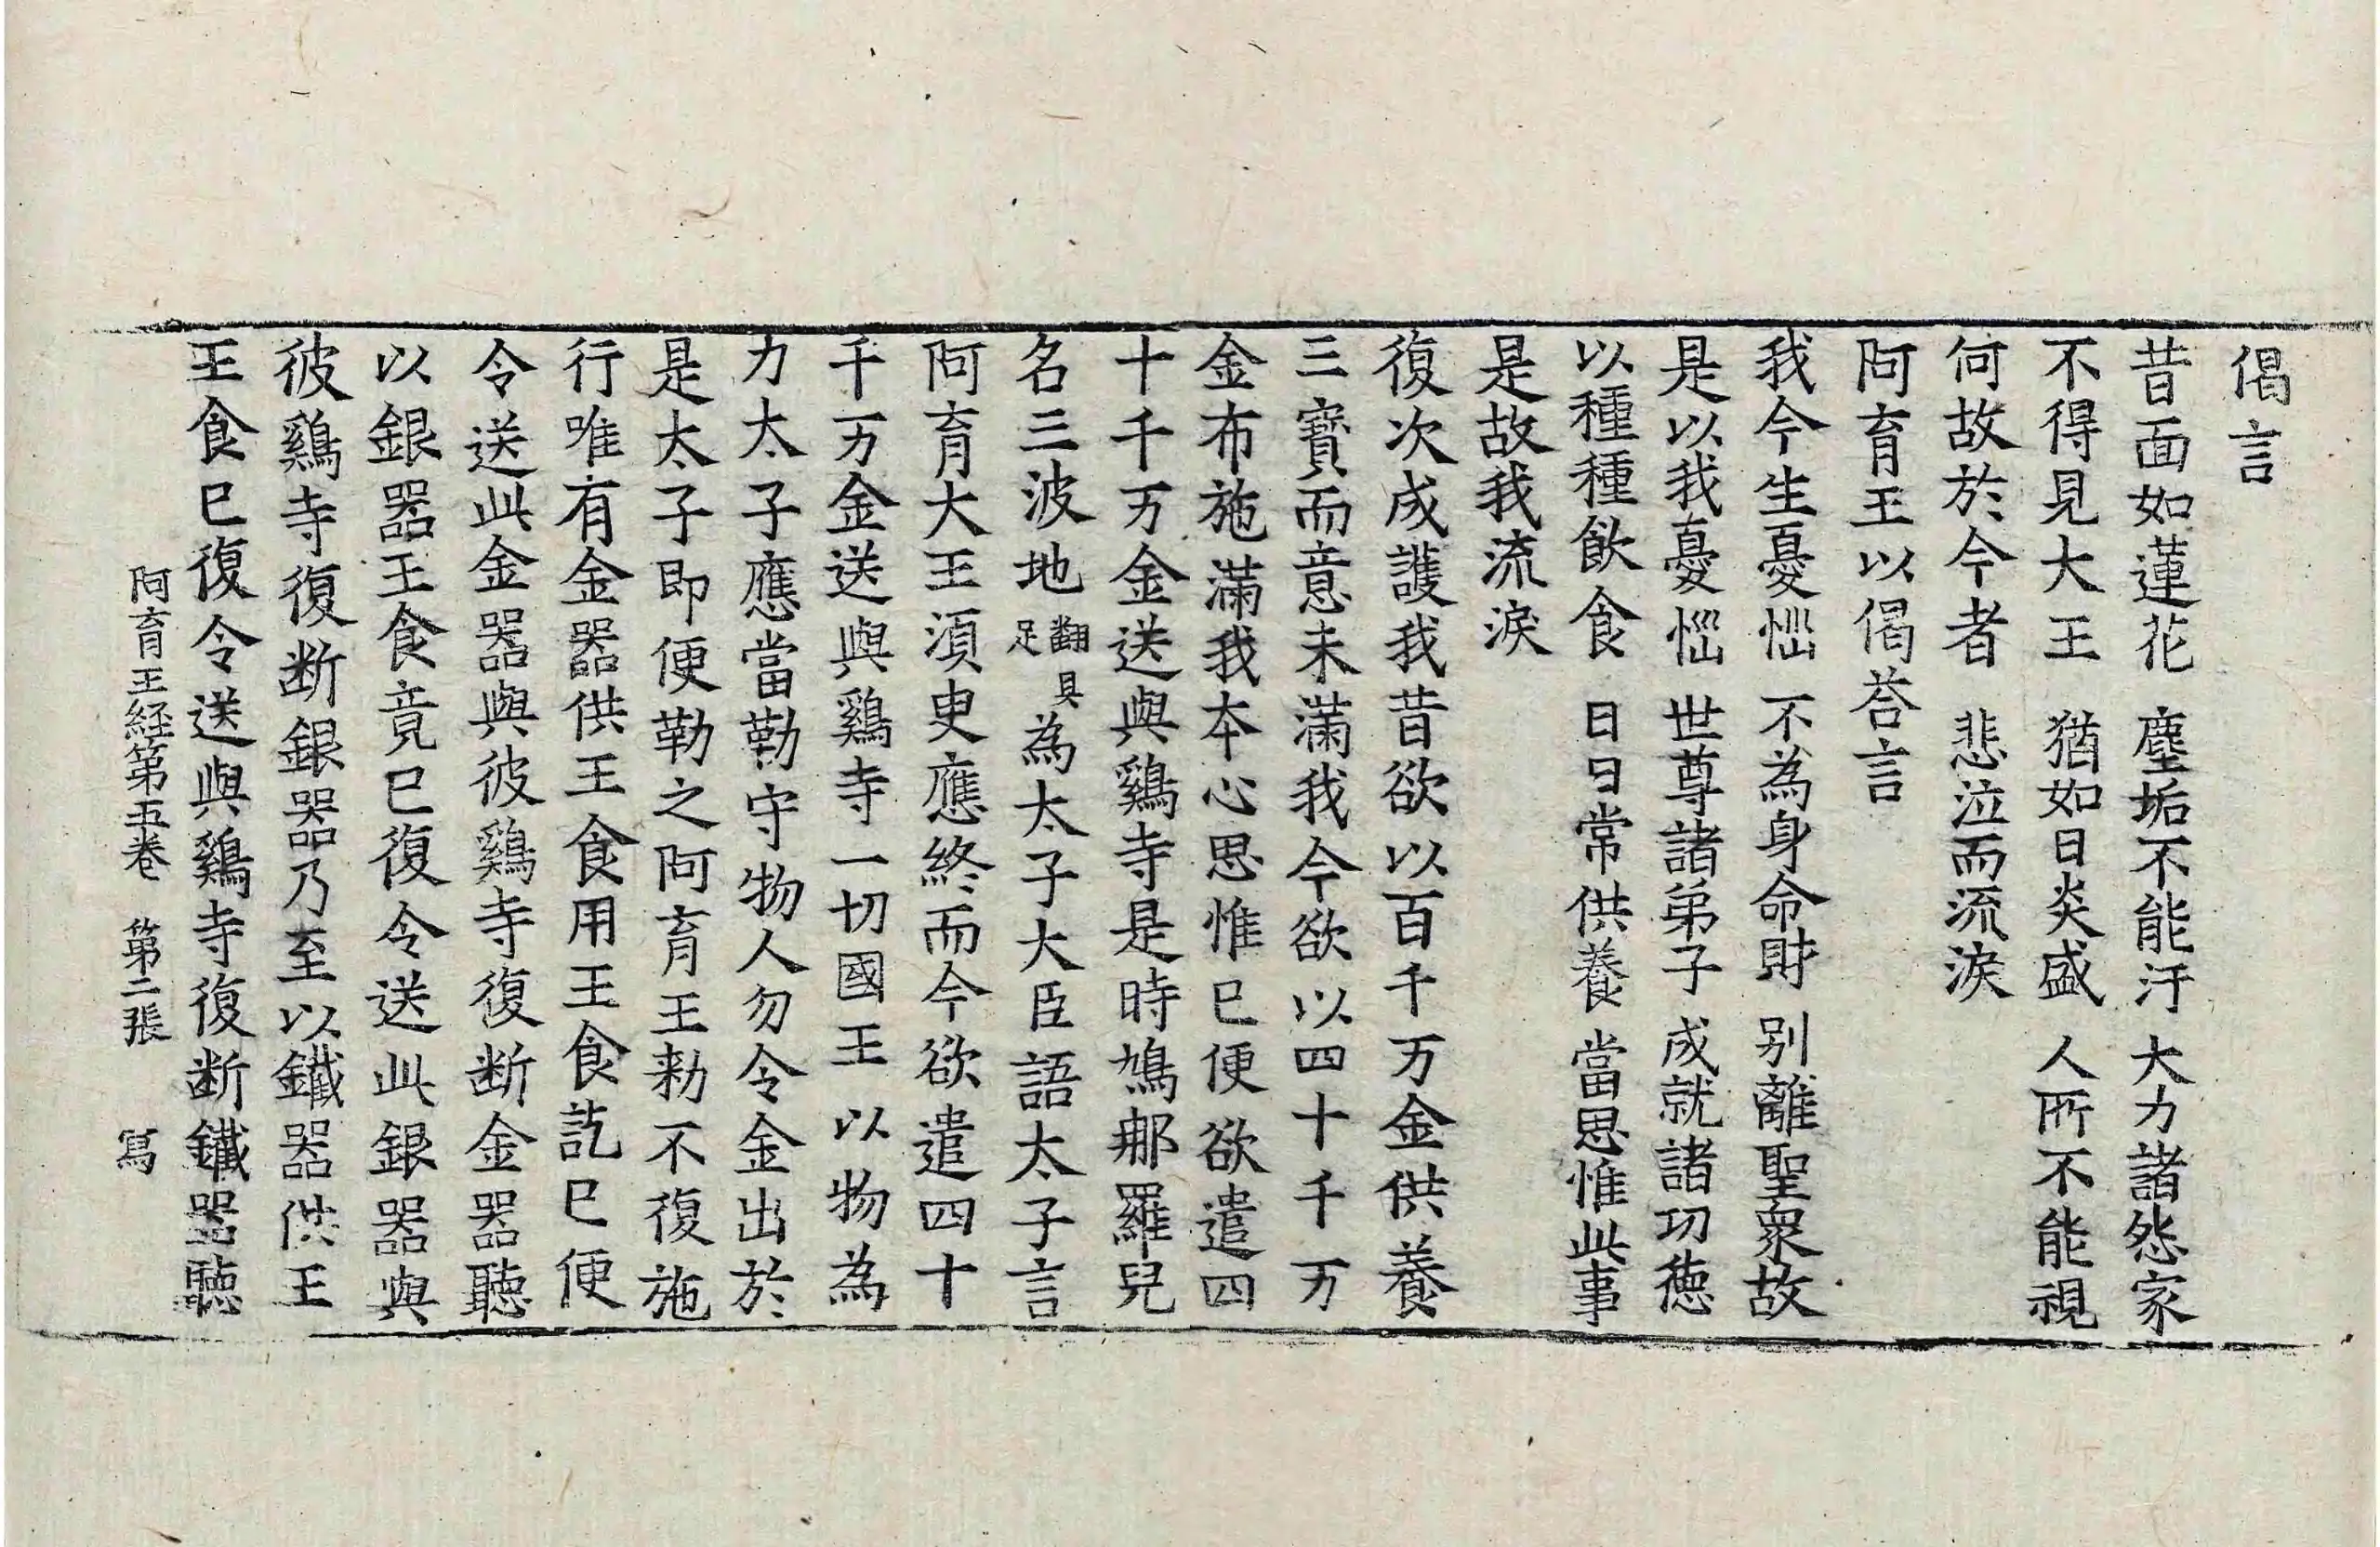 偈言
昔面如蓮花 塵垢不能汙 大力諸怨家
不得見大王 猶如日炎盛 人所不能視
何故於今者 悲泣而流淚
阿育王以偈荅言
我今生憂惱 不為身命財 別離聖衆故
是以我憂惱 世尊諸弟子 成就諸功德
以種種飲食 日日常供養 當思惟此事
是故我流淚
復次成護我昔欲以百千万金供養
三寶而意未滿我今欲以四十千万
金布施滿我本心思惟已便欲遣四
十千万金送與鷄寺是時鳩那羅兒
名三波地翻具足為太子大臣語太子言
阿育大王須臾應終而今欲遣四十
千万金送與鷄寺一切國王以物為
力太子應當勤守物人勿令金出於
是太子即便勒之阿育王勑不復施
行唯有金器供王食用王食訖已便
令送此金器與彼鷄寺復断金器聽
以銀器王食竟已復令送此銀器與
彼鷄寺復断銀器乃至以鐵器供王
王食已復令送與鷄寺復断鐵器聽
阿育王経第五卷 第二張 寫